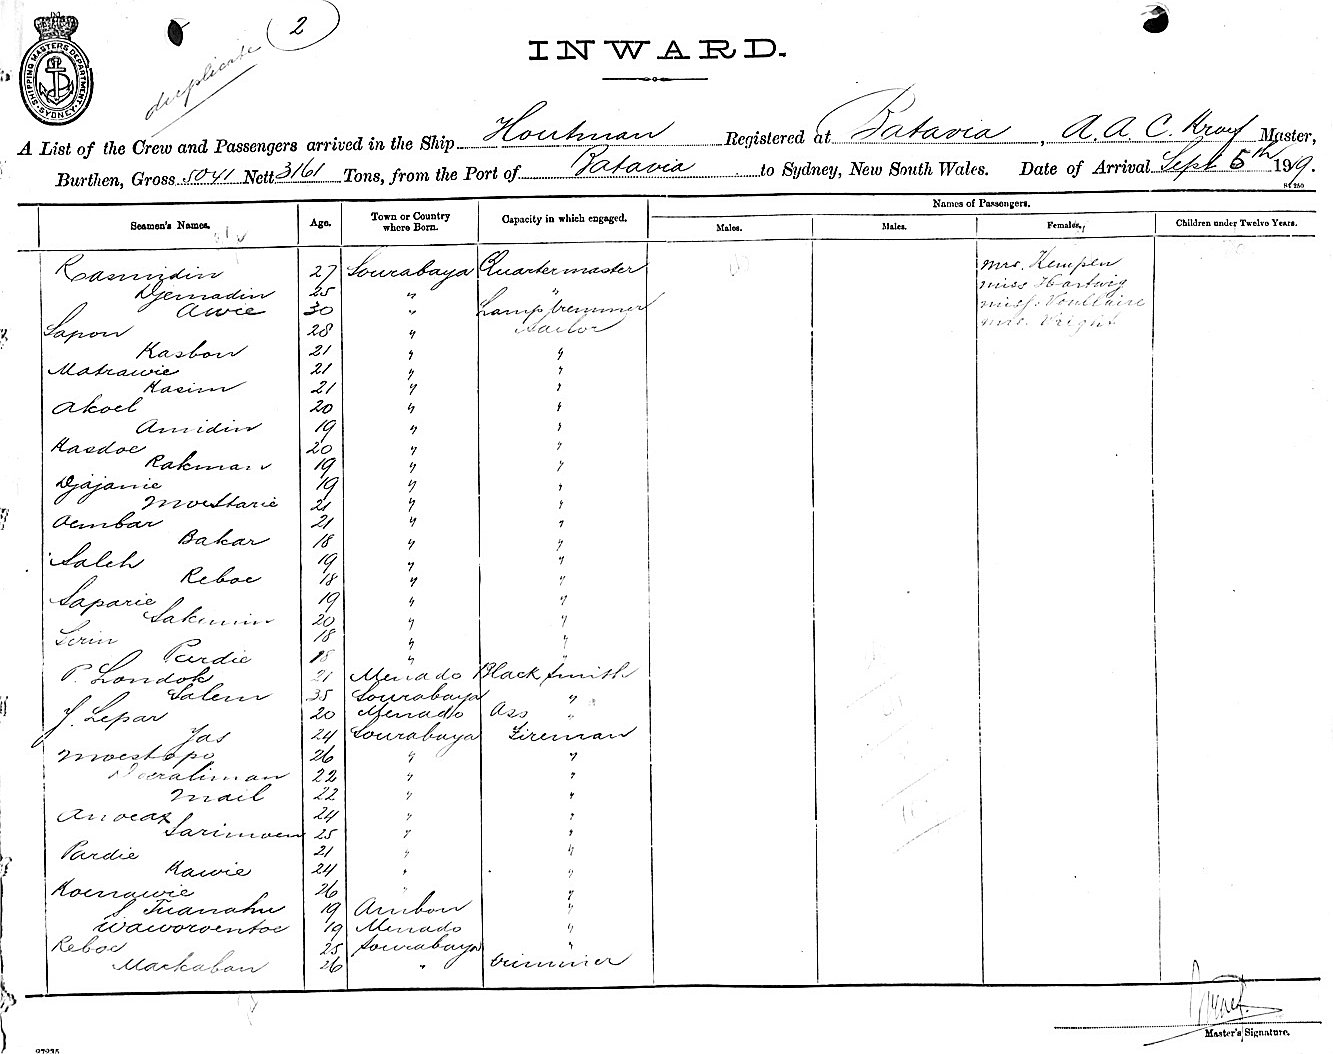 2
duplicate
SHIPPING MASTERS DEPARTMENT SYDNEY
INWARD.
A List of the Crew and Passengers arrived in the Ship Houtman Registered at Batavia, A. A. C. Kroef Master,
Burthen, Gross 5041 Nett 3161 Tons, from the Port of Batavia to Sydney, New South Wales. Date of Arrival Sept 5th 1919.
St 250
Seamen's Names. Age. Town or Country where Born. Capacity in which engaged. Names of Passengers.
Males. Males. Females. Children under Twelve Years.
Rasmidin 27 Sourabaya Quartermaster Mrs. Kempen
Djemadin 25 " " Miss Hartwig
Awie 30 " Lamptremmer Miss Voullaire
Sapon 28 " Sailor Mrs. Vright
Kasbon 21 " "
Matrawie 21 " "
Kasim 21 " "
Akoel 20 " "
Amidin 19 " "
Kasdoe 20 " "
Rakman 19 " "
Djajanie 19 " "
Moestarie 21 " "
Oembar 21 " "
Bakar 18 " "
Saleh 19 " "
Reboe 18 " "
Saparie 19 " "
Sakimin 20 " "
Sirin 18 " "
Perdie 18 " "
P. Londok 21 Menado Black Smith
Salem 35 Sourabaya "
J. Lepar 20 Menado Ass "
Jas 24 Sourabaya Fireman
Moestopo 26 " "
22 " "
Mail 22 " "
Anoear 24 " "
Sarimoen 25 " "
Pardie 21 " "
Kawie 24 " "
Koenawie 26 " "
S Tuanahu 19 Ambon "
Waworoentoe 19 Menado "
Reboe 25 Sourabaya "
Markaban 26 " trimmer
Kroef
Master's Signature.
27275